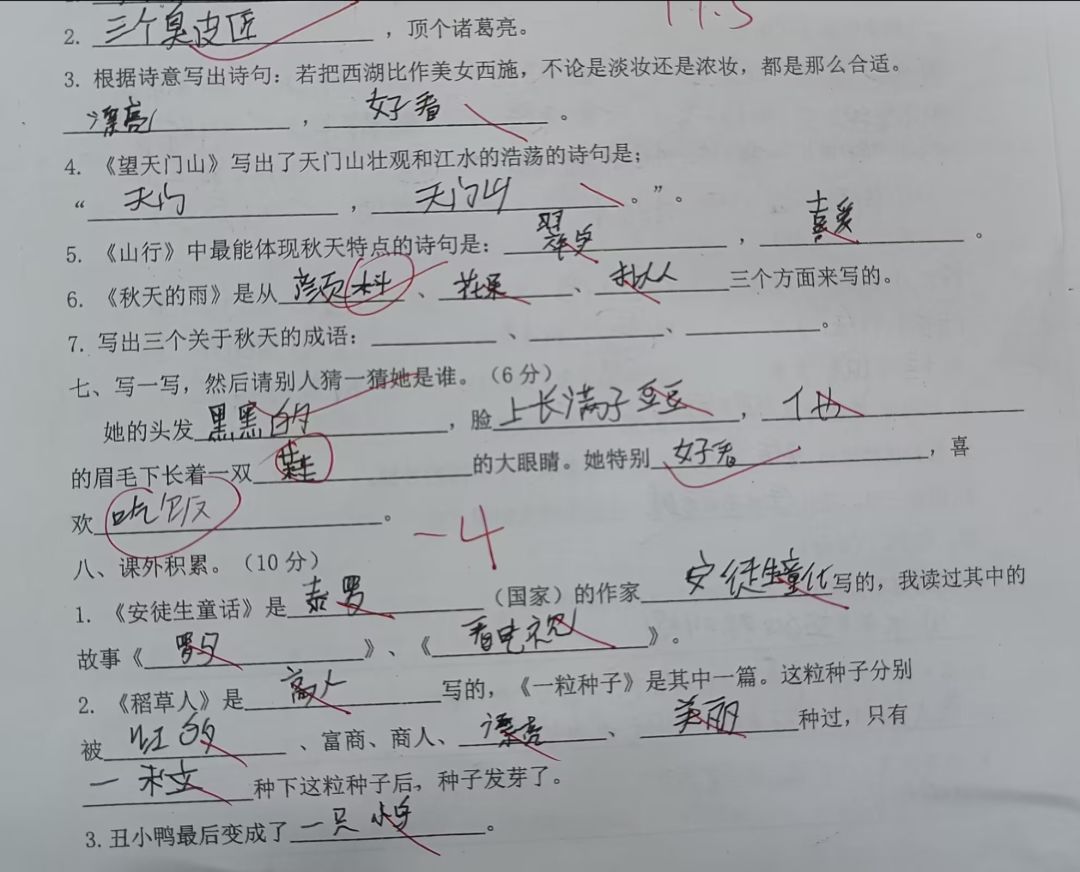 2. 三个臭皮匠，顶个诸葛亮。
3. 根据诗意写出诗句：若把西湖比作美女西施，不论是淡妆还是浓妆，都是那么合适。
漂亮，好看。
4. 《望天门山》写出了天门山壮观和江水的浩荡的诗句是；
“天门，天门山。”。
5. 《山行》中最能体现秋天特点的诗句是：翠鸟，喜爱。
6. 《秋天的雨》是从颜料、花果、拟人三个方面来写的。
7. 写出三个关于秋天的成语：、、。
七、写一写，然后请别人猜一猜她是谁。（6分）
她的头发黑黑的，脸上长满子豆豆，他
的眉毛下长着一双的大眼睛。她特别好看，喜
欢吃饭。
-4
八、课外积累。（10分）
1. 《安徒生童话》是泰罗（国家）的作家安徒生童化写的，我读过其中的
故事《》、《看电视》。
2. 《稻草人》是高人写的，《一粒种子》是其中一篇。这粒种子分别
被红的、富商、商人、漂亮、美丽种过，只有
一粒种下这粒种子后，种子发芽了。
3. 丑小鸭最后变成了一只小鸟。